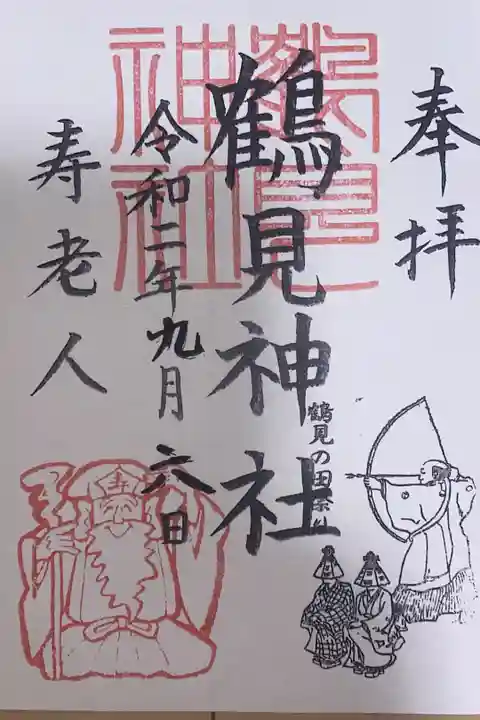 奉拝
鶴見神社
鶴見の田祭り
令和二年九月六日
寿老人
鶴見
神社
寿